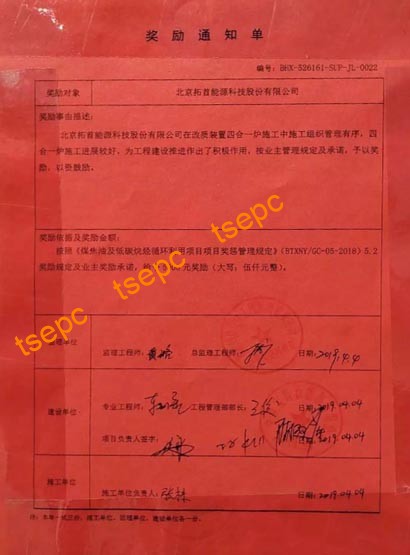 奖励通知单
编号：BHX-326161-SUP-JL-0022
奖励对象 北京拓首能源科技股份有限公司
奖励事由描述：
北京拓首能源科技股份有限公司在改质装置四合一炉施工中施工组织管理有序，四
合一炉施工进展较好，为工程建设推进作出了积极作用，按业主管理规定及承诺，予以奖
励，以资鼓励。
奖励依据及奖励金额：
按照《煤焦油及低碳烷烃循环利用项目项目奖惩管理规定》（BTXNY/GC-05-2018）5.2
奖励规定及业主奖励承诺，给 元奖励（大写：伍仟元整）。
tsepc
tsepc
tsepc
tsepc
监理单位 监理工程师： 总监理工程师： 日期：2019.4.4
建设单位 专业工程师： 工程管理部部长： 2019.04.04
项目负责人签字： 2019.04.04
施工单位 施工单位负责人： 日期：2019.04.04
注：本单一式三份，施工单位、监理单位、建设单位各一份。